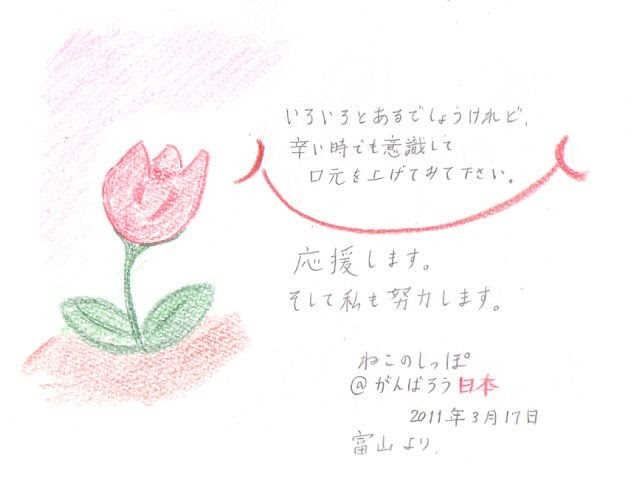 いろいろとあるでしょうけれど、
辛い時でも意識して
口元を上げてみて下さい。
応援します。
そして私も努力します。
ねこのしっぽ
@がんばろう日本
2011年3月17日
富山より